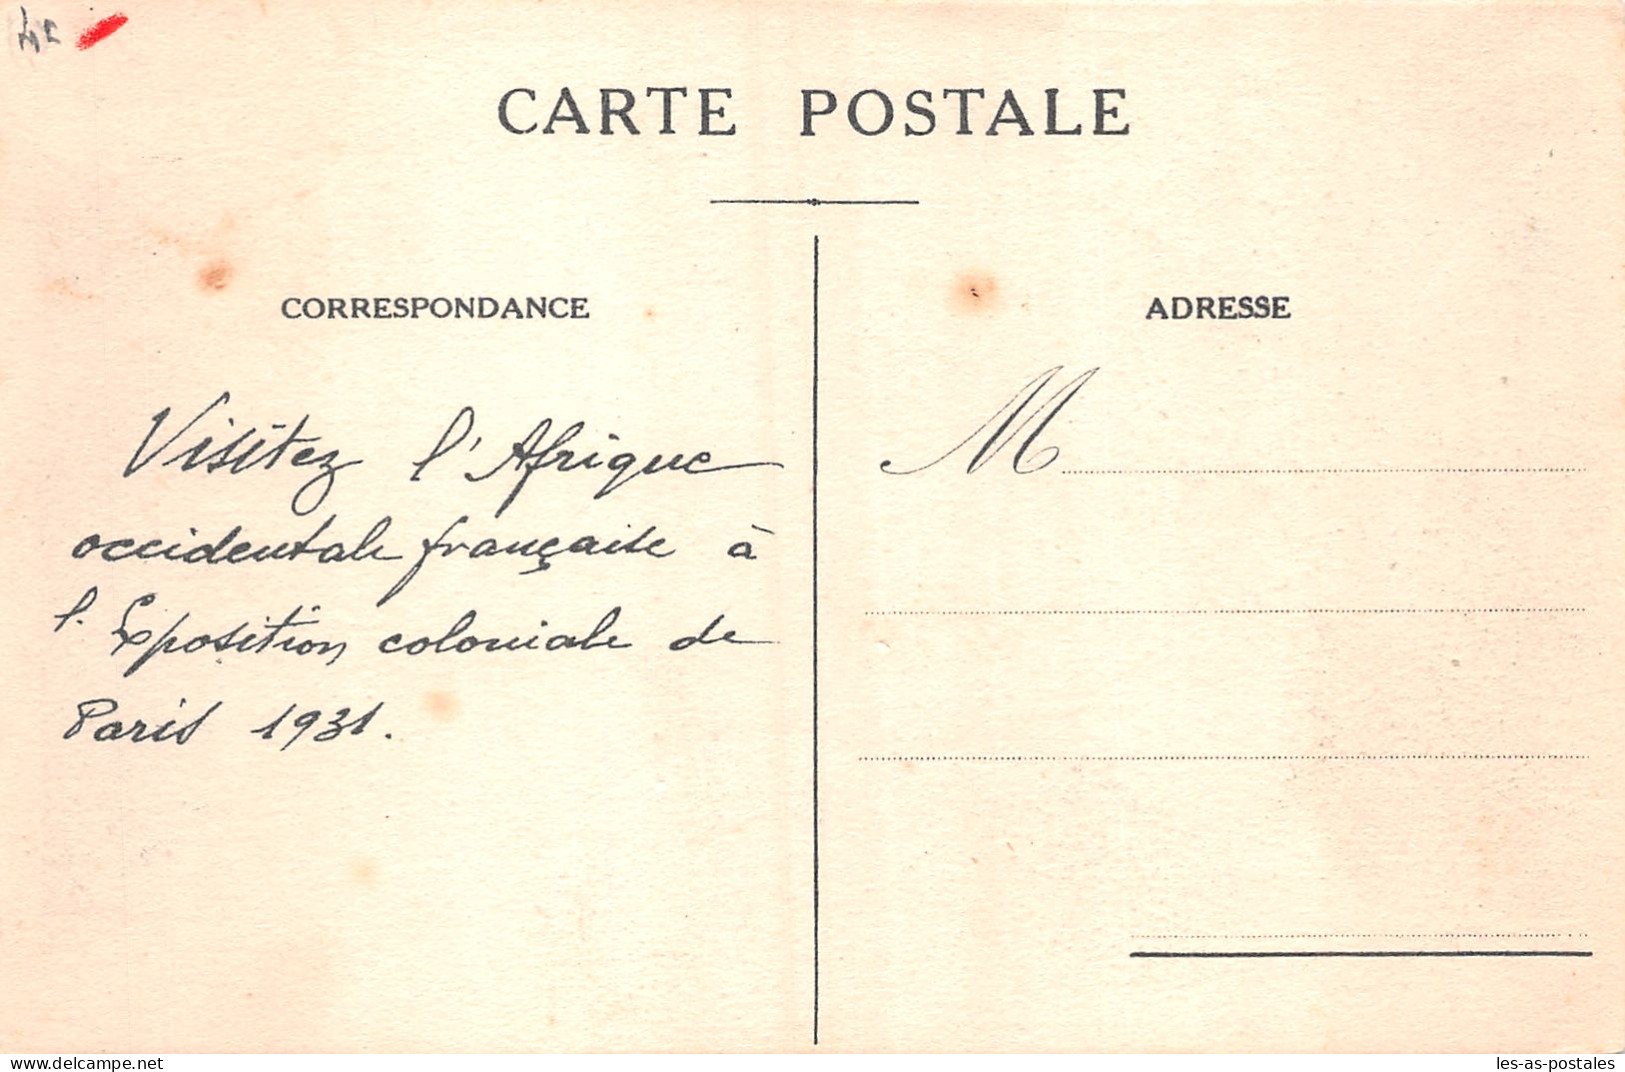 CARTE POSTALE
CORRESPONDANCE
Visitez l'Afrique
occidentale française à
l'Exposition coloniale de
Paris 1931.
ADRESSE
M
delcampe.net
les-as-postales